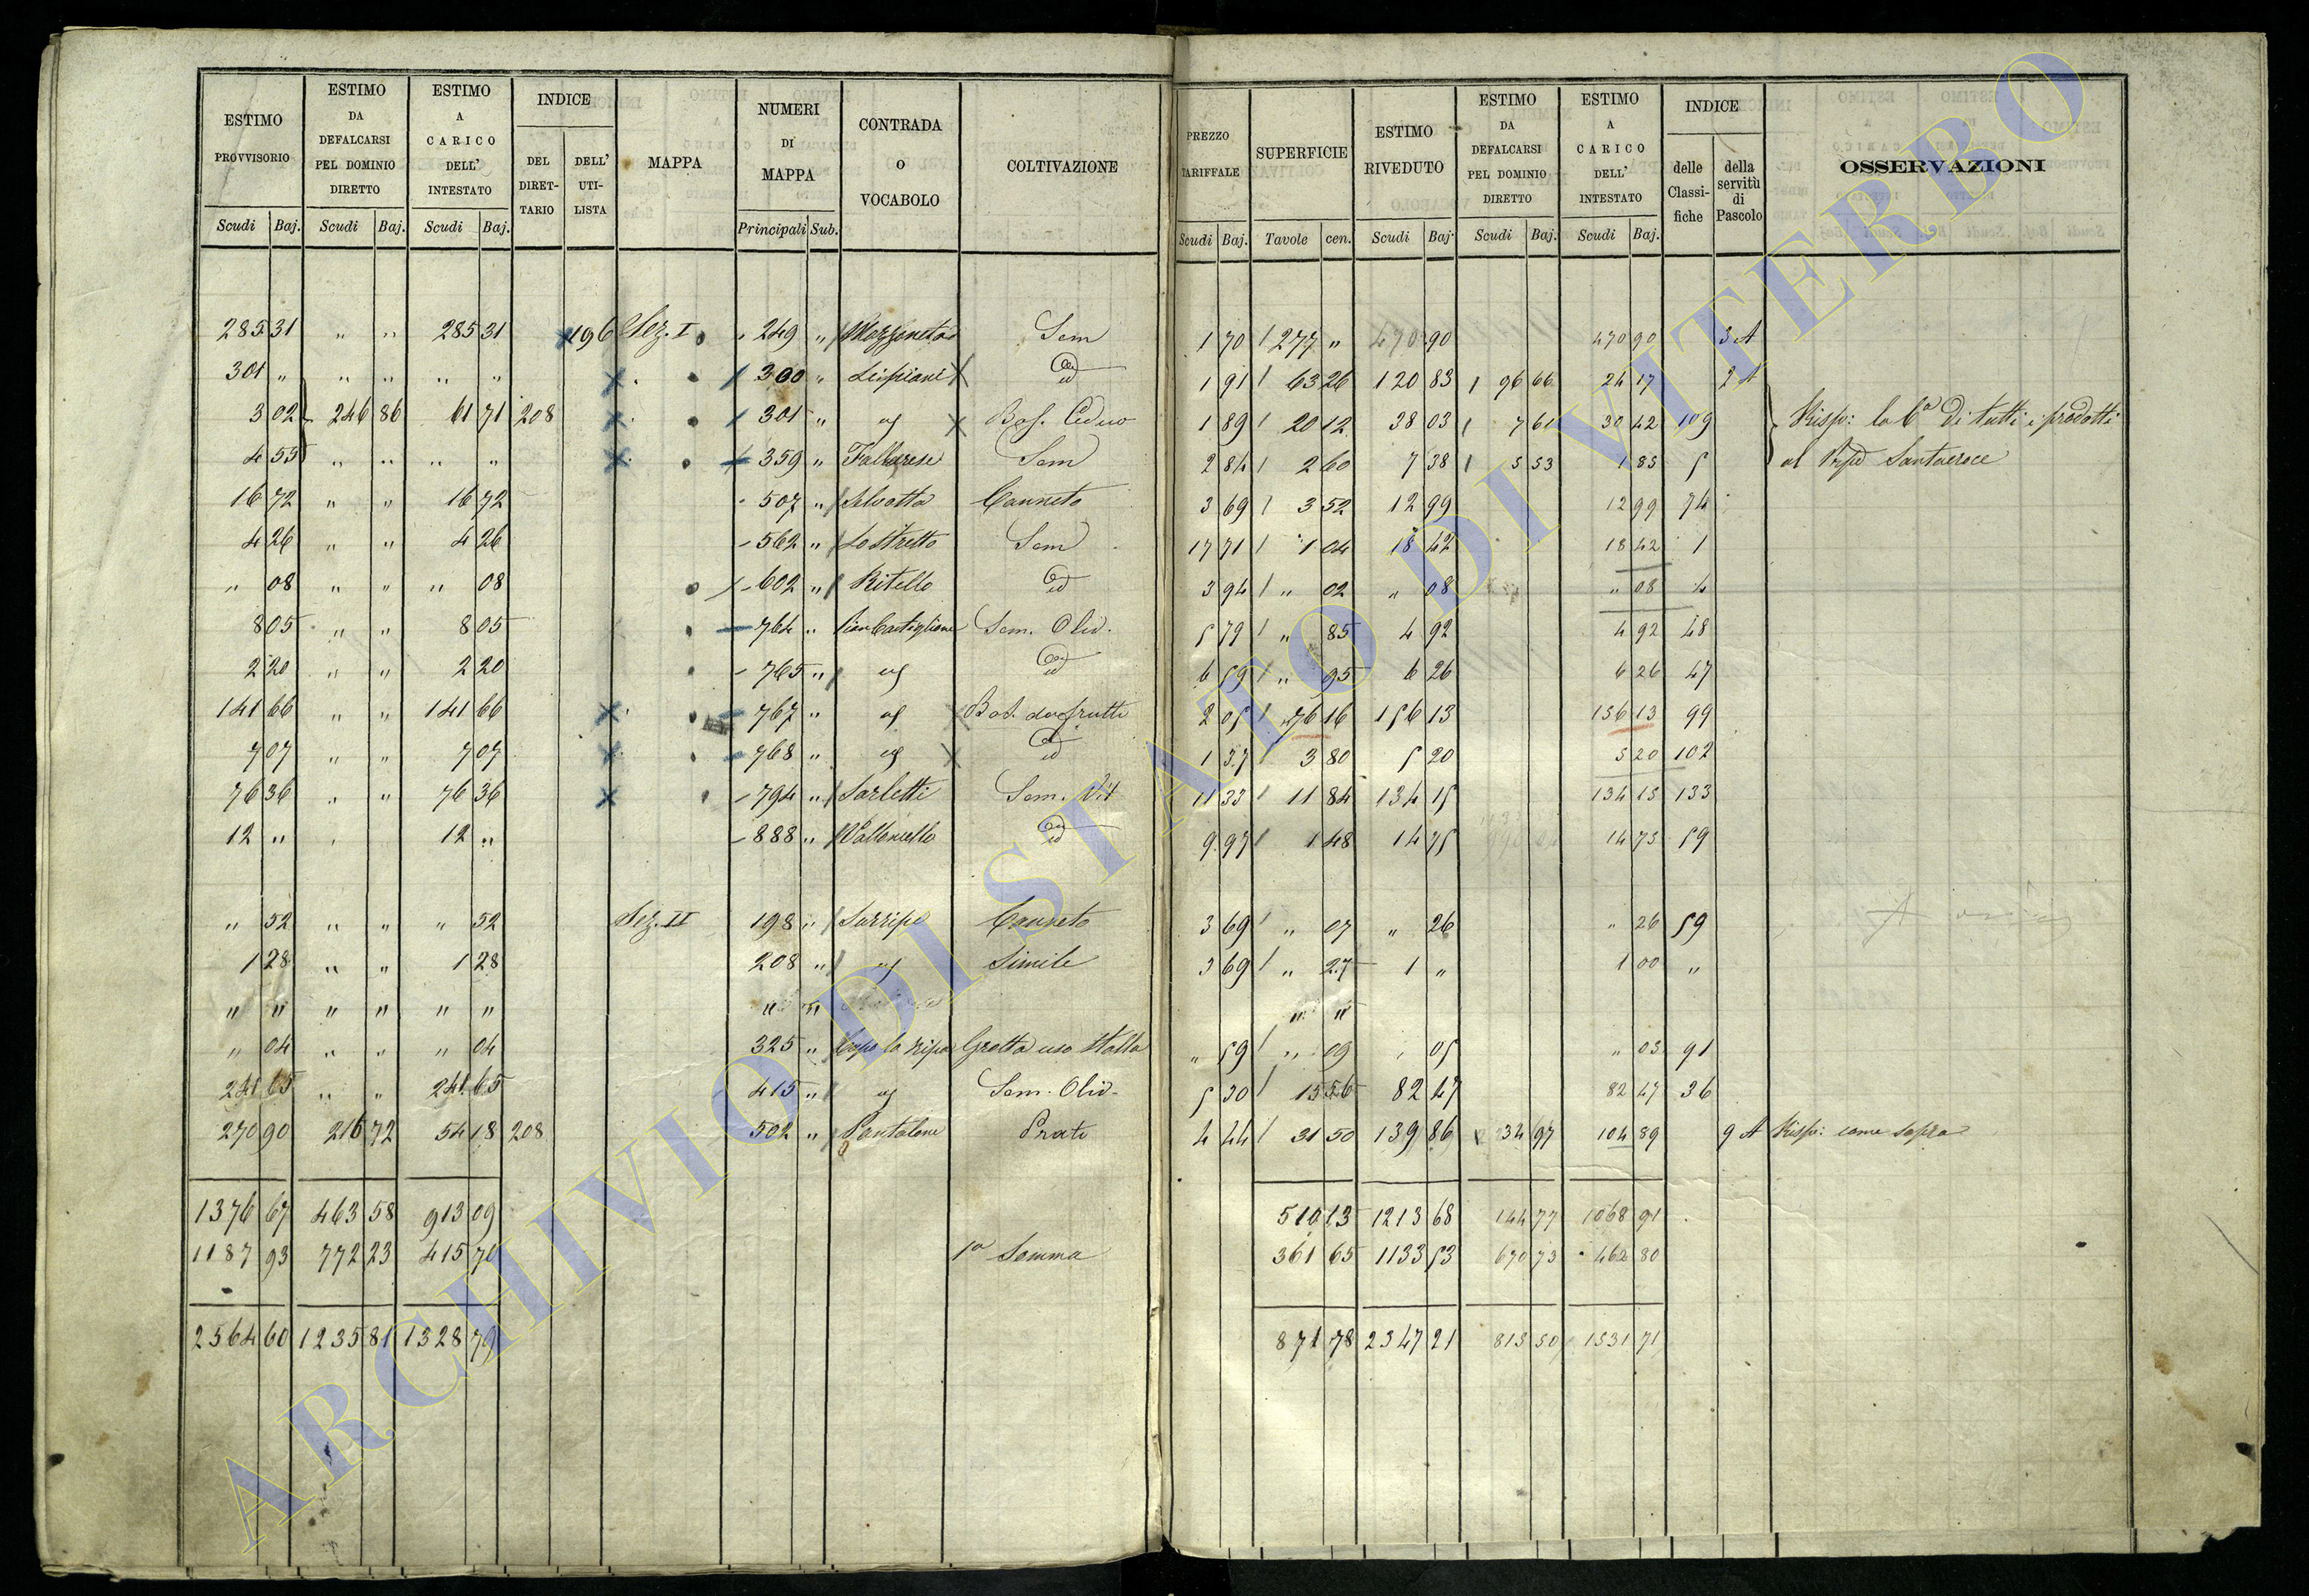 ESTIMO PROVVISORIO
Scudi Baj.
ESTIMO DA DEFALCARSI PEL DOMINIO DIRETTO
Scudi Baj.
ESTIMO A CARICO DELL' INTESTATO
Scudi Baj.
INDICE
DEL DIRET-TARIO
DELL' UTI-LISTA
MAPPA
NUMERI DI MAPPA
Principali Sub.
CONTRADA O VOCABOLO
COLTIVAZIONE
PREZZO TARIFFALE
Scudi Baj.
SUPERFICIE
Tavole cen.
ESTIMO RIVEDUTO
Scudi Baj.
ESTIMO DA DEFALCARSI PEL DOMINIO DIRETTO
Scudi Baj.
ESTIMO A CARICO DELL' INTESTATO
Scudi Baj.
INDICE
delle Classi-fiche
della servitù di Pascolo
OSSERVAZIONI
285 31 " " 285 31 196 Sez. I 249 " Sem 1 70 277 " 470 90 470 90 3 A
301 " " " " " 300 " id 1 91 63 26 120 83 96 66 24 17 2 A
3 02 246 86 61 71 208 301 " Bos. Ceduo 1 89 20 12 38 03 7 61 30 42 109 Risp: la 6a di tutti i prodotti
4 55 " " " " 359 " Sem 2 84 2 60 7 38 5 53 1 85 5 al Santacroce
16 72 " " 16 72 507 " Selvotta Canneto 3 69 3 52 12 99 12 99 74
4 26 " " 4 26 562 " Lo Stretto Sem 17 71 1 04 18 42 18 42 1
" 08 " " " 08 602 " Ritello id 3 94 " 02 " 08 " 08 4
8 05 " " 8 05 764 " Pian Castiglione Sem. Oliv. 5 79 " 85 4 92 4 92 48
2 20 " " 2 20 765 " id 6 59 " 95 6 26 6 26 47
141 66 " " 141 66 767 " Bos. da frutti 2 05 76 16 156 13 156 13 99
7 07 " " 7 07 768 " id 1 37 3 80 5 20 5 20 102
76 36 " " 76 36 794 " Sarletti Sem. Vit 11 33 11 84 134 15 134 15 133
12 " 12 " 888 " Valloncello id 9 97 1 48 14 75 14 75 59
" 52 " " " 52 Sez. II 198 " Surripe Canneto 3 69 " 07 " 26 " 26 59
1 28 " " 1 28 208 " Simile 3 69 " 27 1 " 1 00 "
" " " " " " " " " "
" 04 " " " 04 325 " Capo la ripa Grotta uso Stalla " 59 " 09 05 " 05 91
241 65 " " 241 65 415 " Sem. Oliv. 5 30 15 56 82 47 82 47 36
270 90 216 72 54 18 208 502 " Pantalone Prato 4 44 31 50 139 86 34 97 104 89 9 A Risp: come sopra
1376 67 463 58 913 09 510 13 1213 68 144 77 1068 91
1187 93 772 23 415 70 1a Somma 361 65 1133 53 670 73 462 80
2564 60 1235 81 1328 79 871 78 2347 21 815 50 1531 71
ARCHIVIO DI STATO DI VITERBO